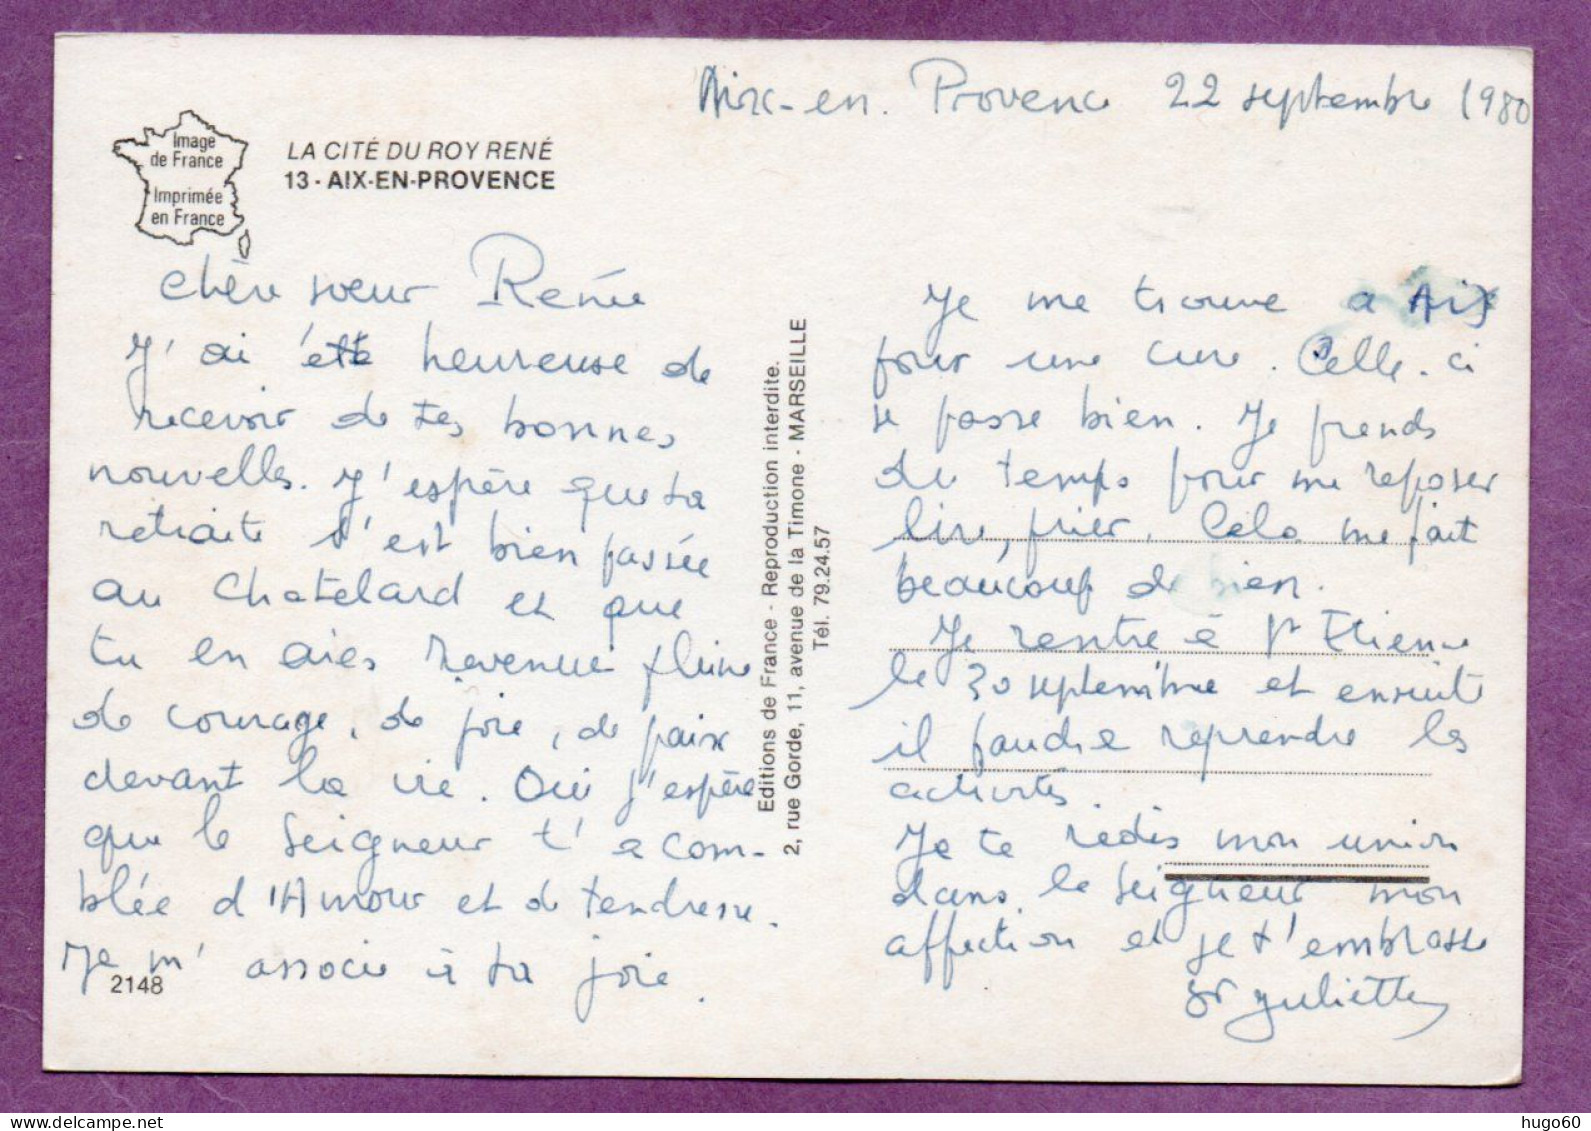 Aix-en. Provence 22 septembre 1980
Image
de France
Imprimée
en France
LA CITÉ DU ROY RENÉ
13 - AIX-EN-PROVENCE
Chère sœur Renée
J'ai été heureuse de
recevoir de tes bonnes
nouvelles. J'espère que ta
retraite s'est bien passée
au Chatelard et que
tu en aies revenue pleine
de courage, de joie, de paix
devant la vie. Oui j'espère
que le Seigneur t'a com-
blée d'Amour et de tendresse.
Je m'associe à ta joie.
2148
Editions de France - Reproduction interdite.
2, rue Gorde, 11, avenue de la Timone - MARSEILLE
Tél. 79.24.57
Je me trouve a Aix
pour une cure. Celle-ci
se passe bien. Je prends
du temps pour me reposer
lire, prier. Cela me fait
beaucoup de bien.
Je rentre à St Etienne
le 30 septembre et ensuite
il faudra reprendre les
activités.
Je te redis mon union
dans le Seigneur mon
affection et je t'embrasse
Sr Juliette
hugo60